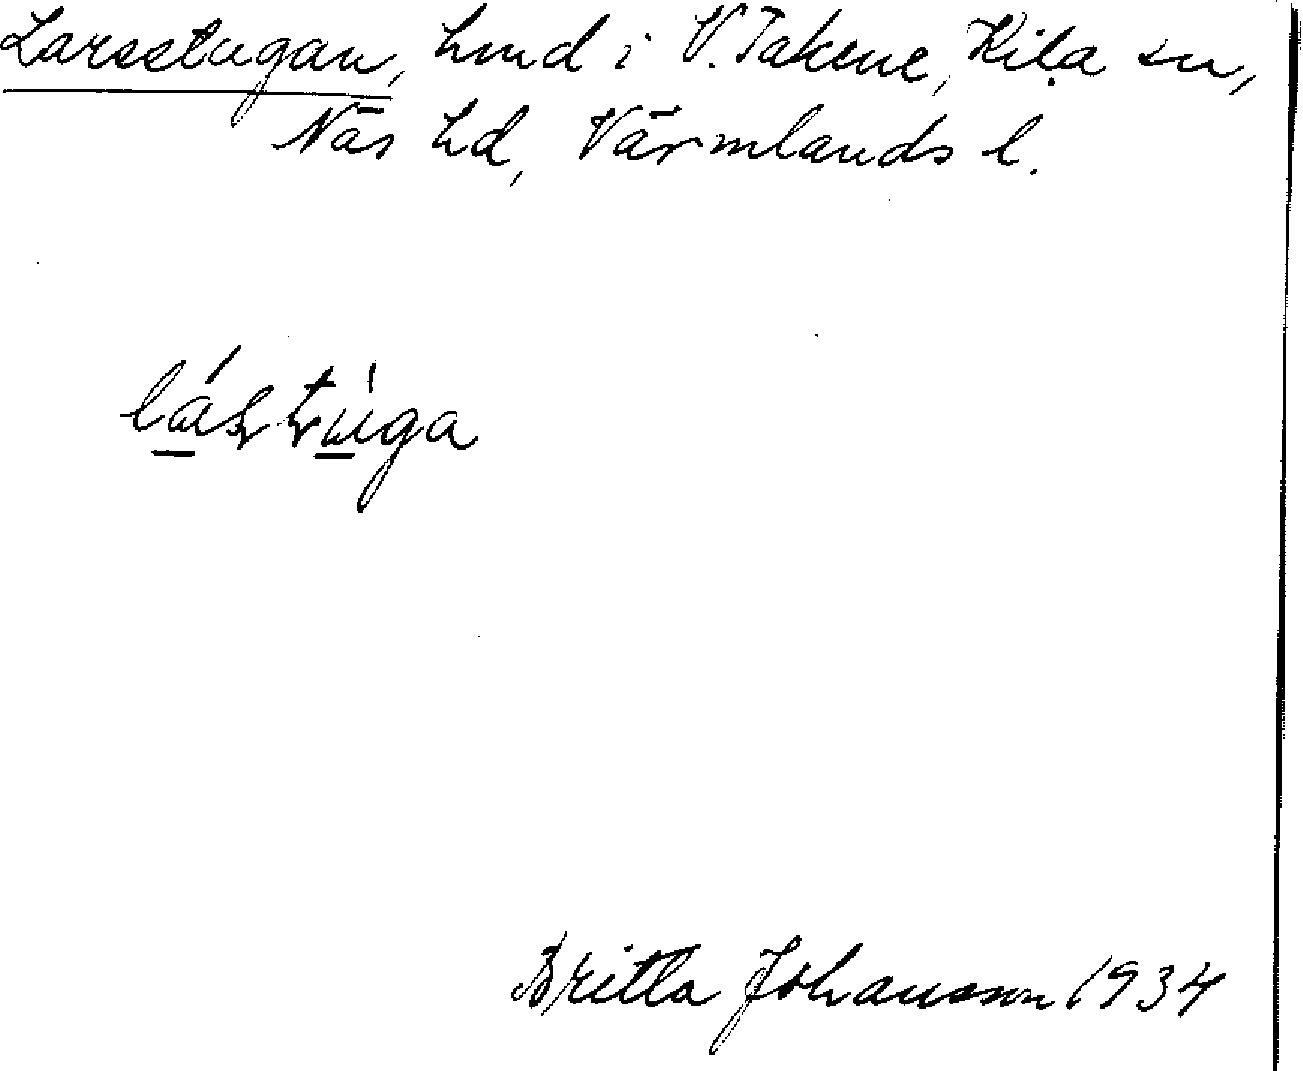 Larsstugan, hmd i V. Takene, Kila sn,
Näs hd, Värmlands l.
lás̠túga
Britta Johansson 1934